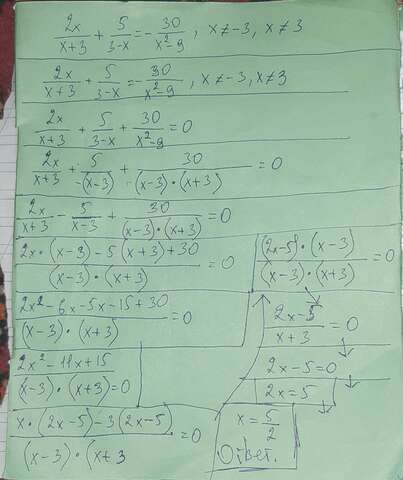 2x/(x+3) + 5/(3-x) = -30/(x²-9), x≠-3, x≠3
2x/(x+3) + 5/(3-x) = -30/(x²-9), x≠-3, x≠3
2x/(x+3) + 5/(3-x) + 30/(x²-9) = 0
2x/(x+3) + 5/(-(x-3)) + 30/((x-3)·(x+3)) = 0
2x/(x+3) - 5/(x-3) + 30/((x-3)·(x+3)) = 0
(2x·(x-3)-5(x+3)+30)/((x-3)·(x+3)) = 0
(2x²-6x-5x-15+30)/((x-3)·(x+3)) = 0
2x²-11x+15
(x-3)·(x+3)=0
(x·(2x-5)-3(2x-5))/((x-3)·(x+3) = 0
((2x-5)·(x-3))/((x-3)·(x+3)) = 0
(2x-5)/(x+3) = 0
2x-5=0
2x=5
x=5/2
Ответ.